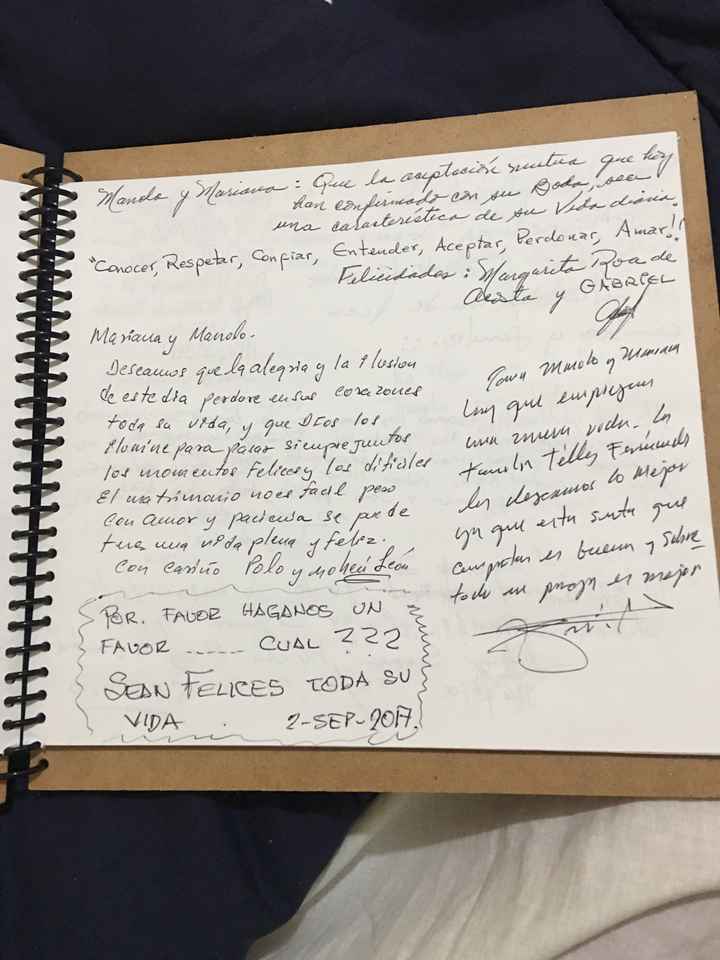 Manolo y Mariana: Que la aceptación mutua que hoy
han confirmado con su Boda, sea
una característica de su Vida diaria.
"Conocer, Respetar, Confiar, Entender, Aceptar, Perdonar, Amar!!
Felicidades: Margarita Roa de
Acosta y GABRIEL
Mariana y Manolo.
Deseamos que la alegria y la ilusion
de este dia perdore en sus corazones
toda su vida, y que Dios los
ilumine para pasar siempre juntos
los momentos Felices y los dificiles
El matrimonio no es facil pero
con amor y paciencia se puede
una vida plena y feliz.
Con cariño Polo y León
POR. FAVOR HAGANOS UN
FAVOR ..... CUAL ???
SEAN FELICES TODA SU
VIDA . 2-SEP-2017.
Para Manolo y Mariana
hoy que empiezan
una nueva vida. La
Familia Téllez Fernández
les deseamos lo mejor
ya que esta que
es buena y sobre
todo en es mejor